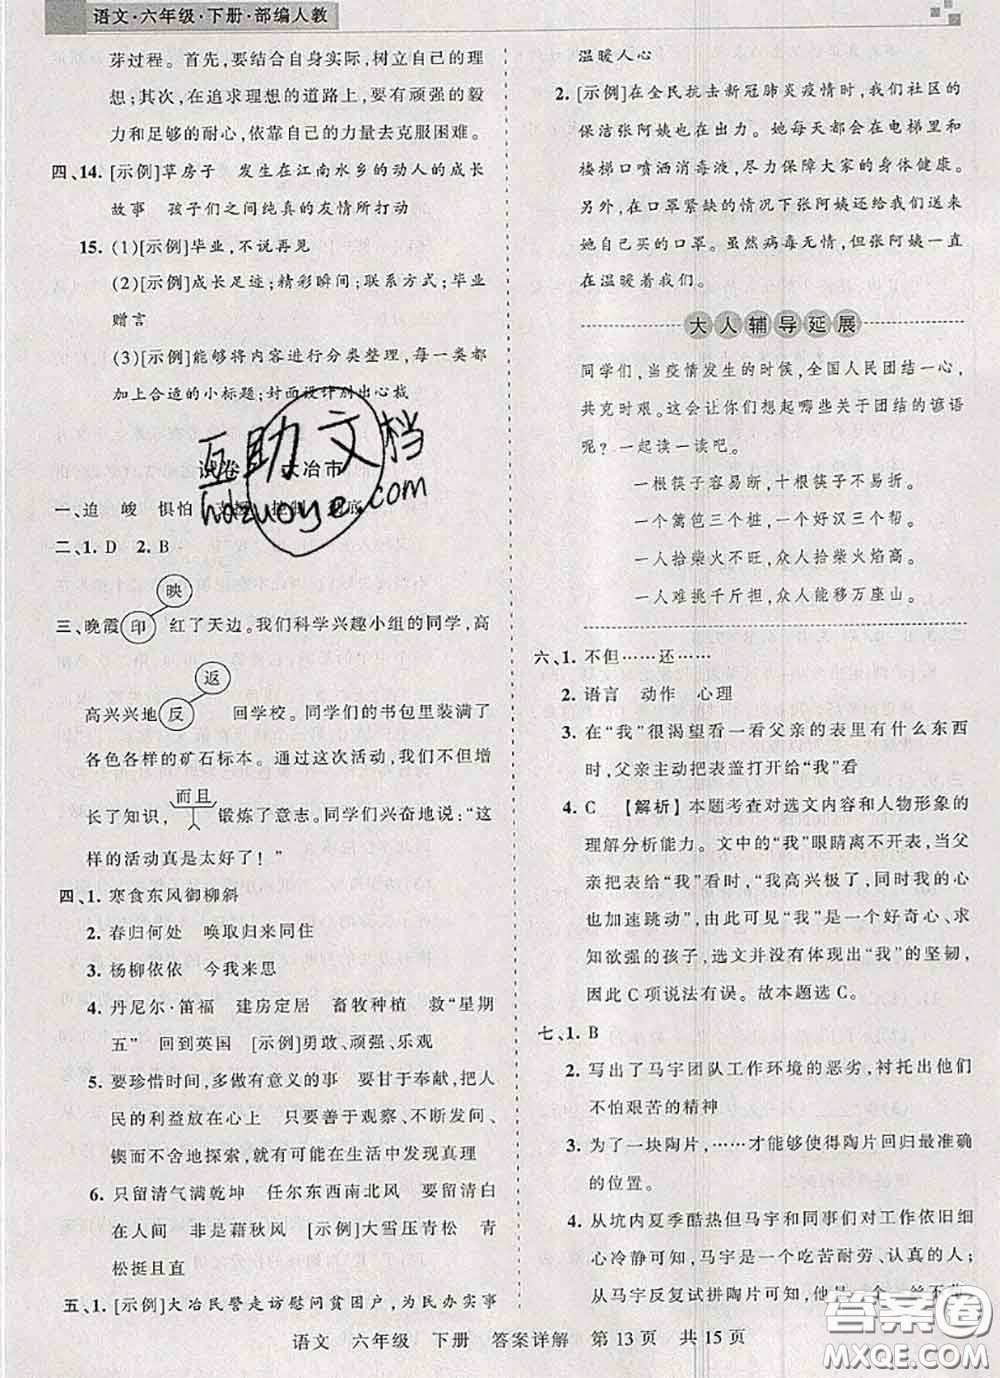 语文·六年级·下册·部编人教
芽过程。首先,要结合自身实际,树立自己的理
想;其次,在追求理想的道路上,要有顽强的毅
力和足够的耐心,依靠自己的力量去克服困难。
四、14. [示例]草房子 发生在江南水乡的动人的成长
故事 孩子们之间纯真的友情所打动
15. (1)[示例]毕业,不说再见
(2)[示例]成长足迹;精彩瞬间;联系方式;毕业
赠言
(3)[示例]能够将内容进行分类整理,每一类都
加上合适的小标题;封面设计别出心裁
试卷 大冶市
一、迫 峻 惧怕 支援 控制 彻底
二、1. D 2. B
映
三、晚霞 印 红了天边。我们科学兴趣小组的同学,高
返
高兴兴地 反 回学校。同学们的书包里装满了
各色各样的矿石标本。通过这次活动,我们不但增
而且
长了知识, 锻炼了意志。同学们兴奋地说:“这
样的活动真是太好了!”
四、1. 寒食东风御柳斜
2. 春归何处 唤取归来同住
3. 杨柳依依 今我来思
4. 丹尼尔·笛福 建房定居 畜牧种植 救“星期
五” 回到英国 [示例]勇敢、顽强、乐观
5. 要珍惜时间,多做有意义的事 要甘于奉献,把人
民的利益放在心上 只要善于观察,不断发问,
锲而不舍地探索,就有可能在现实中发现真理
6. 只留清气满乾坤 任尔东西南北风 要留清白
在人间 非是藉秋风 [示例]大雪压青松 青
松挺且直
五、1. [示例]大冶民警走访慰问贫困户,为民办实事
温暖人心
2. [示例]在全民抗击新冠肺炎疫情时,我们社区的
保洁张阿姨让我很感动。她每天都会在电梯里和
楼梯口喷洒消毒液,尽力保障大家的身体健康。
另外,在口罩紧缺的情况下张阿姨还给我们送来
她自己买的口罩。虽然病毒无情,但张阿姨一直
在温暖着我们。
大人辅导延展
同学们,当疫情发生的时候,全国人民团结一心,
共克时艰。这会让你们想起哪些关于团结的谚语
呢?一起读一读吧。
一根筷子容易断,十根筷子不易折。
一个篱笆三个桩,一个好汉三个帮。
一人拾柴火不旺,众人拾柴火焰高。
一人难挑千斤担,众人能移万座山。
六、1. 不但……还……
2. 语言 动作 心理
3. 在“我”很渴望看一看父亲的表里有什么东西
时,父亲主动把表盖打开给“我”看
4. C 【解析】本题考查对选文内容和人物形象的
理解分析能力。文中的“我”眼睛离不开表,当父
亲把表给“我”看时,“我高兴极了,同时我的心
也加速跳动”,由此可见“我”是一个好奇心、求
知欲强的孩子,选文并没有体现出“我”的坚韧,
因此C项说法有误。故本题选C。
七、1. B
2. 写出了马宇团队工作环境的恶劣,衬托出他们
不怕艰苦的精神
3. 为了一块陶片,……才能够使得陶片回归最准确
的位置。
4. 从坑内夏季酷热但马宇和同事们对工作依旧细
心冷静可知,马宇是一个吃苦耐劳、认真的人;
从马宇反复试拼陶片可知,他是一个一丝不苟
语文 六年级 下册 答案详解 第13页 共15页
互助文档
hdzuoye.com
答案圈
MXQE.COM